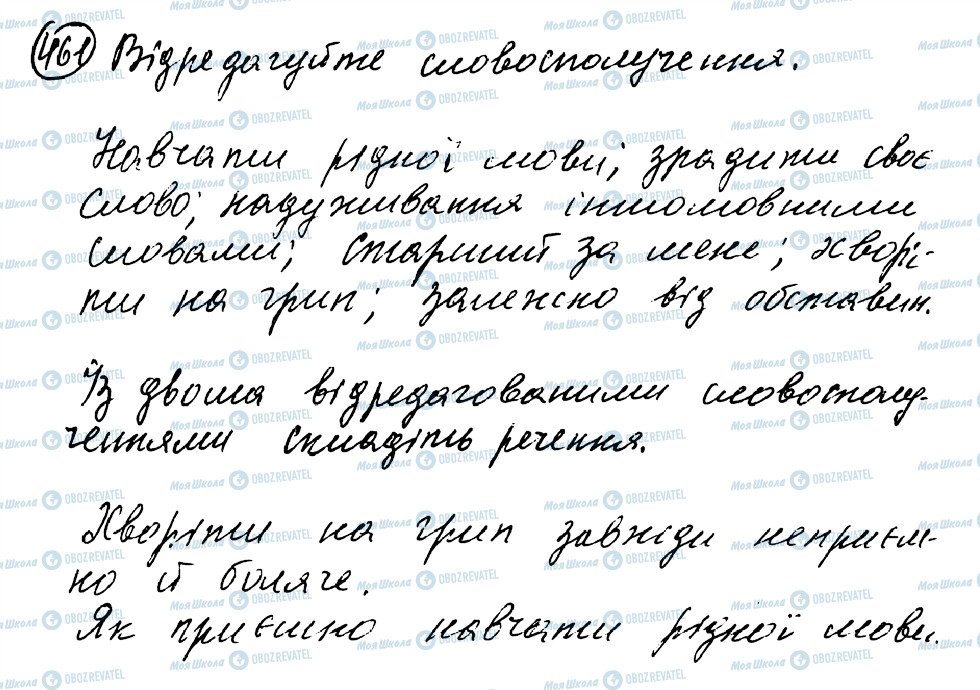 461 Відредагуйте словосполучення.
Навчати рідної мови; зрадити своє
слово; надуживання іншомовними
словами; старший за мене; хворі-
ти на грип; залежно від обставин.
Із двома відредагованими словосполу-
ченнями складіть речення.
Хворіти на грип завжди неприєм-
но й боляче.
Як приємно навчати рідної мови.